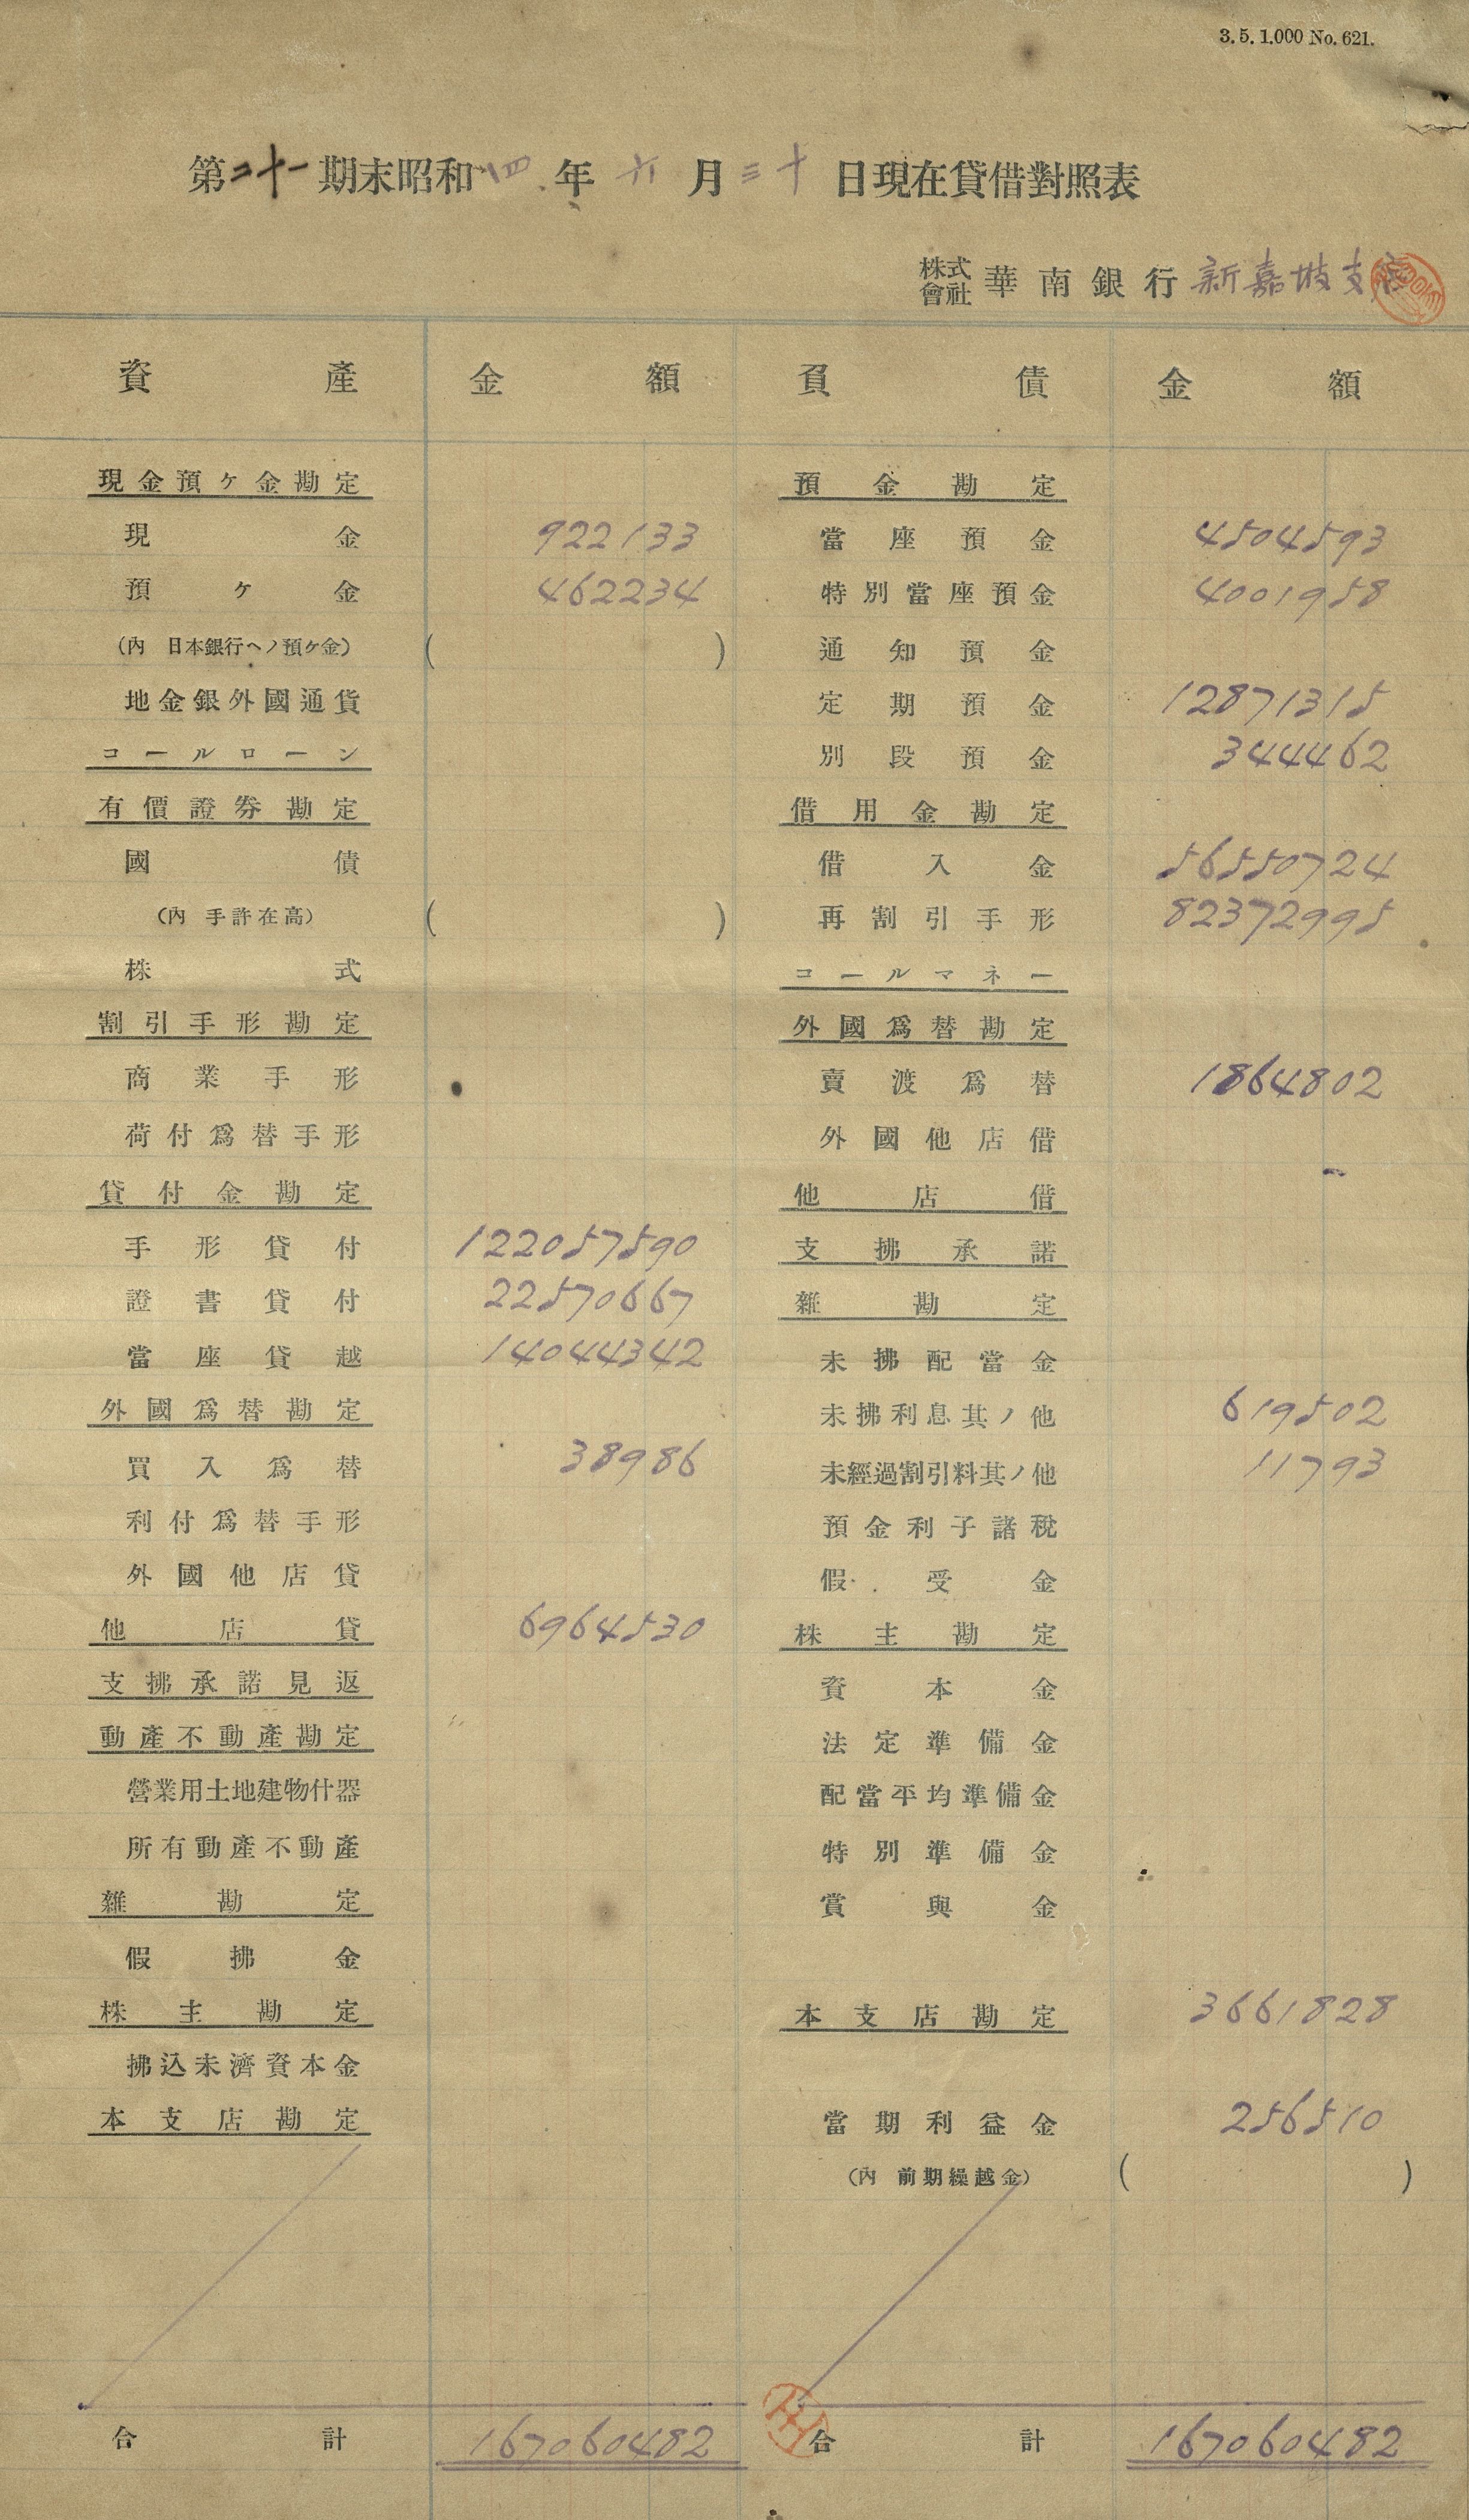 3. 5. 1.000 No. 621.
第二十一期末昭和四年六月三十日現在貸借對照表
株式會社 華南銀行 新嘉坡支店
資產 金額 負債 金額
現金預ケ金勘定
現金 922133
預ケ金 462234
(內 日本銀行ヘノ預ケ金) ( )
地金銀外國通貨
コールローン
有價證券勘定
國債
(內 手許在高) ( )
株式
割引手形勘定
商業手形
荷付爲替手形
貸付金勘定
手形貸付 122057590
證書貸付 22570667
當座貸越 14044342
外國爲替勘定
買入爲替 38986
利付爲替手形
外國他店貸
他店貸 6964530
支拂承諾見返
動產不動產勘定
營業用土地建物什器
所有動產不動產
雜勘定
假拂金
株主勘定
拂込未濟資本金
本支店勘定
合計 167060482
預金勘定
當座預金 4504593
特別當座預金 4001958
通知預金
定期預金 12871315
別段預金 344462
借用金勘定
借入金 56550724
再割引手形 82372995
コールマネー
外國爲替勘定
賣渡爲替 1864802
外國他店借
他店借
支拂承諾
雜勘定
未拂配當金
未拂利息其ノ他 619502
未經過割引料其ノ他 11793
預金利子諸稅
假受金
株主勘定
資本金
法定準備金
配當平均準備金
特別準備金
賞與金
本支店勘定 3661828
當期利益金 256510
(內 前期繰越金) ( )
合計 167060482